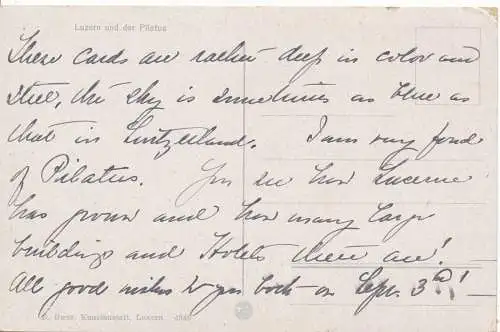 Luzern und der Pilatus
These cards are rather deep in color and
still, the sky is sometimes as blue as
that in Switzerland. I am very fond
of Pilatus. You see how Lucerne
has grown and how many large
buildings and Hotels there are!
All good wishes to you both on Sept. 3rd!
E. Goetz, Kunstanstalt, Luzern. 4840